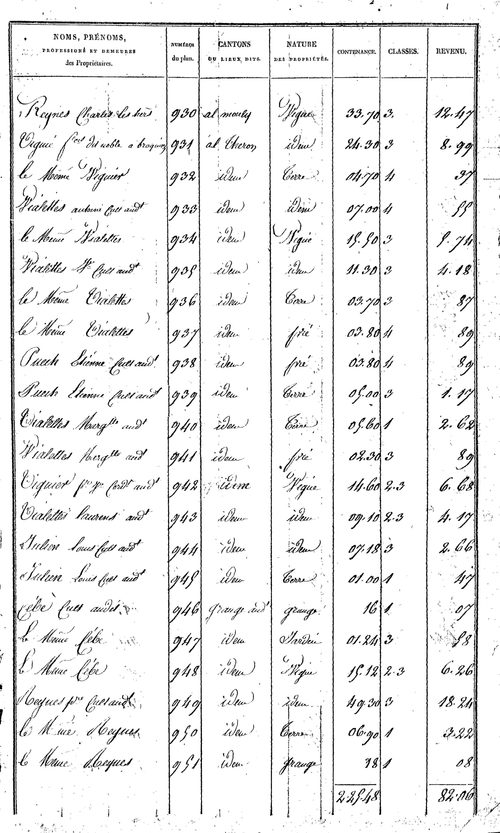 NOMS, PRÉNOMS, PROFESSIONS ET DEMEURES des Propriétaires. NUMÉROS du plan. CANTONS OU LIEUX DITS. NATURE DES PROPRIÉTÉS. CONTENANCE. CLASSES. REVENU.
Reynes Charles les hers 930 al mouly Vigne 33.70 3. 12.47
Viguié dit noble a 931 al Theron idem 24.30 3 8.99
le Même Viguier 932 idem Terre 04.70 4 37
Vialettes antoine Cult audt 933 idem idem 07.00 4 55
le Même Vialettes 934 idem Vigne 15.50 3 5.74
Vialettes Ve Cult audt 935 idem idem 11.30 3 4.18
le Même Vialettes 936 idem Terre 03.70 3 87
le Même Vialettes 937 idem pré 03.80 4 89
Puech Etienne Cult audt 938 idem pré 03.80 4 89
Puech Etienne Cult audt 939 idem Terre 05.00 3 1.17
Vialettes audt 940 idem Terre 05.60 1 2.62
Vialettes audt 941 idem pré 02.30 3 89
Viguier audt 942 idem Vigne 14.60 2.3 6.68
Vialettes Laurens audt 943 idem idem 09.10 2.3 4.17
Julien Louis Cult audt 944 idem idem 07.18 3 2.66
Julien Louis Cult audt 945 idem Terre 01.00 1 47
Cébé Cult audit 946 grange audt grange 16 1 07
le Même Cébé 947 idem Jardin 01.24 3 58
le Même Cébé 948 idem Vigne 15.12 2.3 6.26
Reynes Cult audt 949 idem idem 49.30 3 18.24
le Même Reynes 950 idem Terre 06.90 1 3.22
le Même Reynes 951 idem grange 18 1 08
2.25.48 82.06